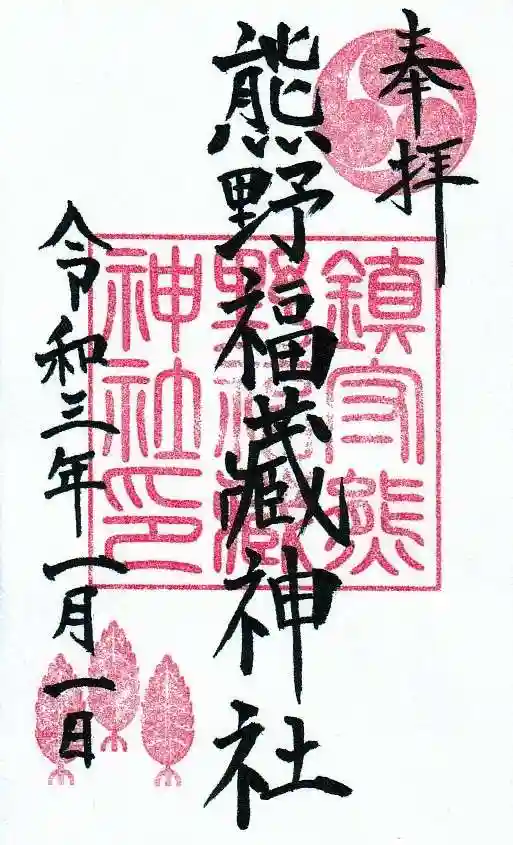 奉拝
熊野福藏神社
鎮守熊
野福藏
神社印
令和三年一月一日